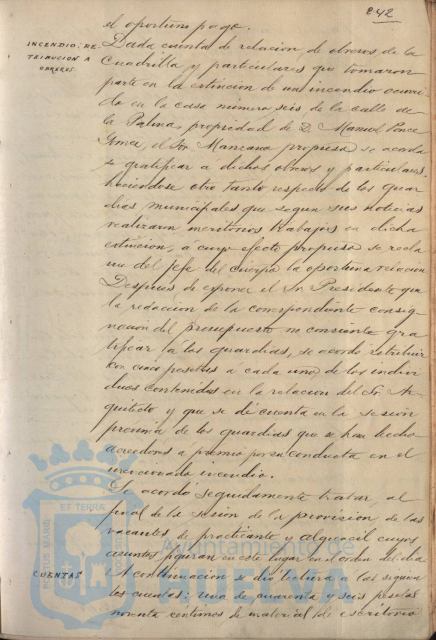 242
el oportuno pago.
INCENDIO: RE-
TRIBUCION A
OBREROS.
Dada cuenta de relacion de obreros de la
Cuadrilla y particulares que tomaron
parte en la extincion de un incendio ocurri-
do en la casa número seis de la calle de
la Palma, propiedad de D. Manuel Ponce
el Sr. Manzano propuso se acorda
se gratificar a dichos obreros y particulares,
haciéndose otro tanto respecto de los guar
dias municipales que segun sus noticias
realizaron meritorios trabajos en dicha
extincion, a cuyo efecto propuso se recla
me del Jefe del Cuerpo la oportuna relacion
Despues de exponer el Sr. Presidente que
la redaccion de la correspondiente consig-
nacion del presupuesto no consiente gra
tificar a los guardias, se acordó retribuir
con cinco pesetas a cada uno de los indivi
duos contenidos en la relacion del Sr. Ar-
quitecto y que se dé cuenta en la sesion
proxima de los guardias que se han hecho
acreedores a premio por su conducta en el
mencionado incendio.
Se acordó seguidamente tratar, al
final de la sesion de la provision de las
vacantes de practicante y alguacil cuyos
asuntos figuran en este lugar en el orden del dia
CUENTAS
A continuacion se dio lectura a las siguien
tes cuentas: una de cuarenta y seis pesetas
noventa centimos de material de escritorio
PORTUS MARIS
ET TERRAE
Ayuntamiento de